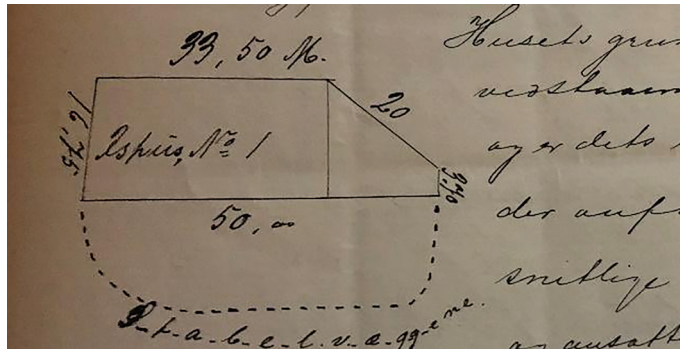 33,50 M.
20
16,75
Ishus, No 1
50,00
S-t-a-b-e-l-v-æ-gg-e-ne.
Husets grun
og er dets
der anf
snitlige
og ansatt